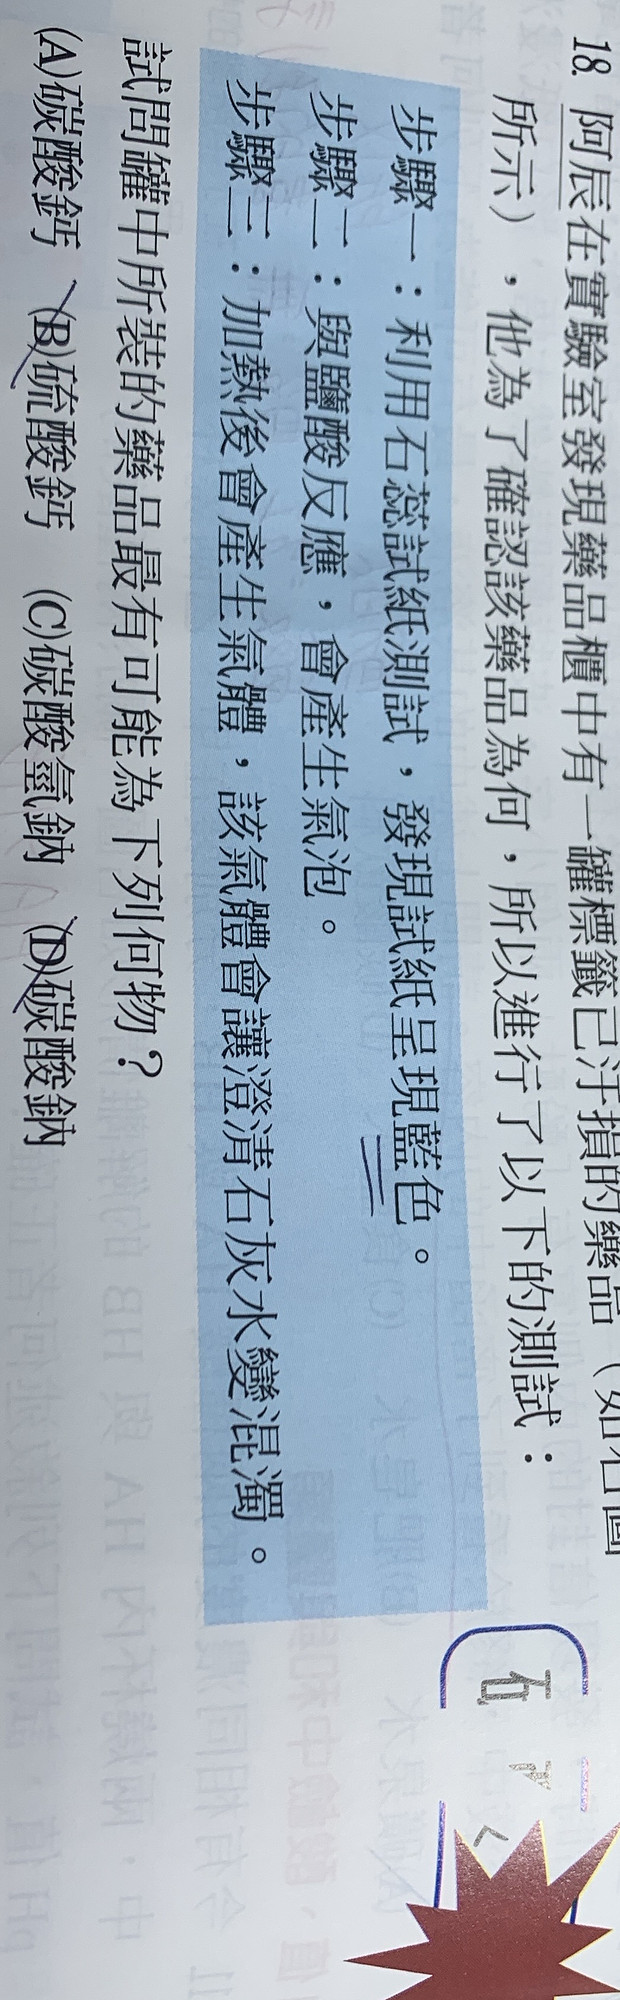 18. 阿辰在實驗室發現藥品櫃中有一罐標籤已汙損的藥品（如右圖
所示），他為了確認該藥品為何，所以進行了以下的測試：
步驟一：利用石蕊試紙測試，發現試紙呈現藍色。
步驟二：與鹽酸反應，會產生氣泡。
步驟三：加熱後會產生氣體，該氣體會讓澄清石灰水變混濁。
試問罐中所裝的藥品最有可能為下列何物？
(A)碳酸鈣 (B)硫酸鈣 (C)碳酸氫鈉 (D)碳酸鈉